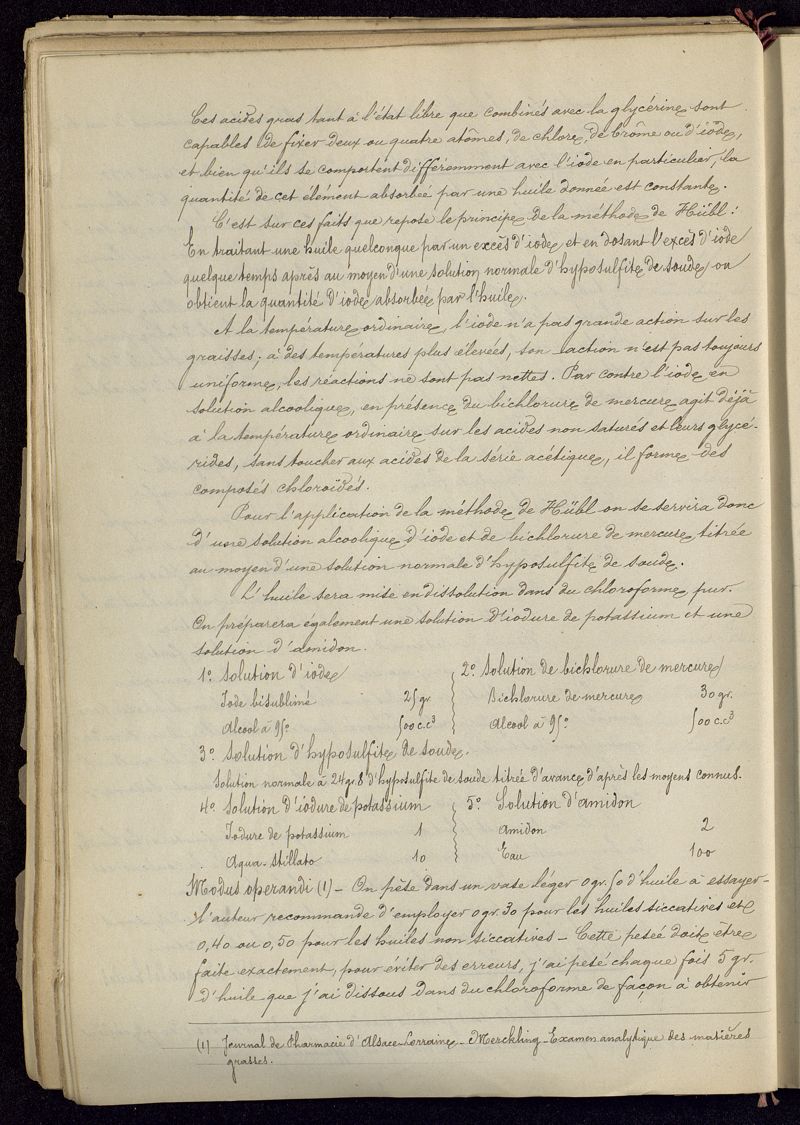 Ces acides gras tant à l'état libre que combinés avec la glycérine sont
capables de fixer deux ou quatre atômes, de chlore, de brôme ou d'iode,
et bien qu'ils se comportent différemment avec l'iode en particulier, la
quantité de cet élément absorbée par une huile donnée est constante.
C'est sur ces faits que repose le principe de la méthode de Hübl :
En traitant une huile quelconque par un excès d'iode et en dosant l'excès d'iode
quelque temps après au moyen d'une solution normale d'hyposulfite de soude on
obtient la quantité d'iode absorbée par l'huile.
A la température ordinaire, l'iode n'a pas grande action sur les
graisses; à des températures plus élevées, son action n'est pas toujours
uniforme, les réactions ne sont pas nettes. Par contre l'iode en
solution alcoolique, en présence du bichlorure de mercure agit déjà
à la température ordinaire sur les acides non saturés et leurs glycé-
rides, sans toucher aux acides de la série acétique, il forme des
composés chloroïdés.
Pour l'application de la méthode de Hübl on se servira donc
d'une solution alcoolique d'iode et de bichlorure de mercure titrée
au moyen d'une solution normale d'hyposulfite de soude.
L'huile sera mise en dissolution dans du chloroforme pur.
On préparera également une solution d'iodure de potassium et une
solution d'amidon.
1° Solution d'iode 2° Solution de bichlorure de mercure
Iode bisublimé 25 gr. Bichlorure de mercure 30 gr.
Alcool à 95° 500 c.c³ Alcool à 95° 500 c.c³
3° Solution d'hyposulfite de soude.
Solution normale à 24 gr. 8 d'hyposulfite de soude titrée d'avance d'après les moyens connus.
4° Solution d'iodure de potassium 5° Solution d'amidon
Iodure de potassium 1 Amidon 2
Aqua-stillato 10 Eau 100
Modus operandi (1) - On pèse dans un vase léger 0 gr. 50 d'huile à essayer -
l'auteur recommande d'employer 0 gr. 30 pour les huiles siccatives et
0,40 ou 0,50 pour les huiles non siccatives - Cette pesée doit être
faite exactement, pour éviter des erreurs, j'ai pesé chaque fois 5 gr.
d'huile que j'ai dissous dans du chloroforme de façon à obtenir
(1) Journal de Pharmacie d'Alsace-Lorraine - Merckling - Examen analytique des matières
grasses.